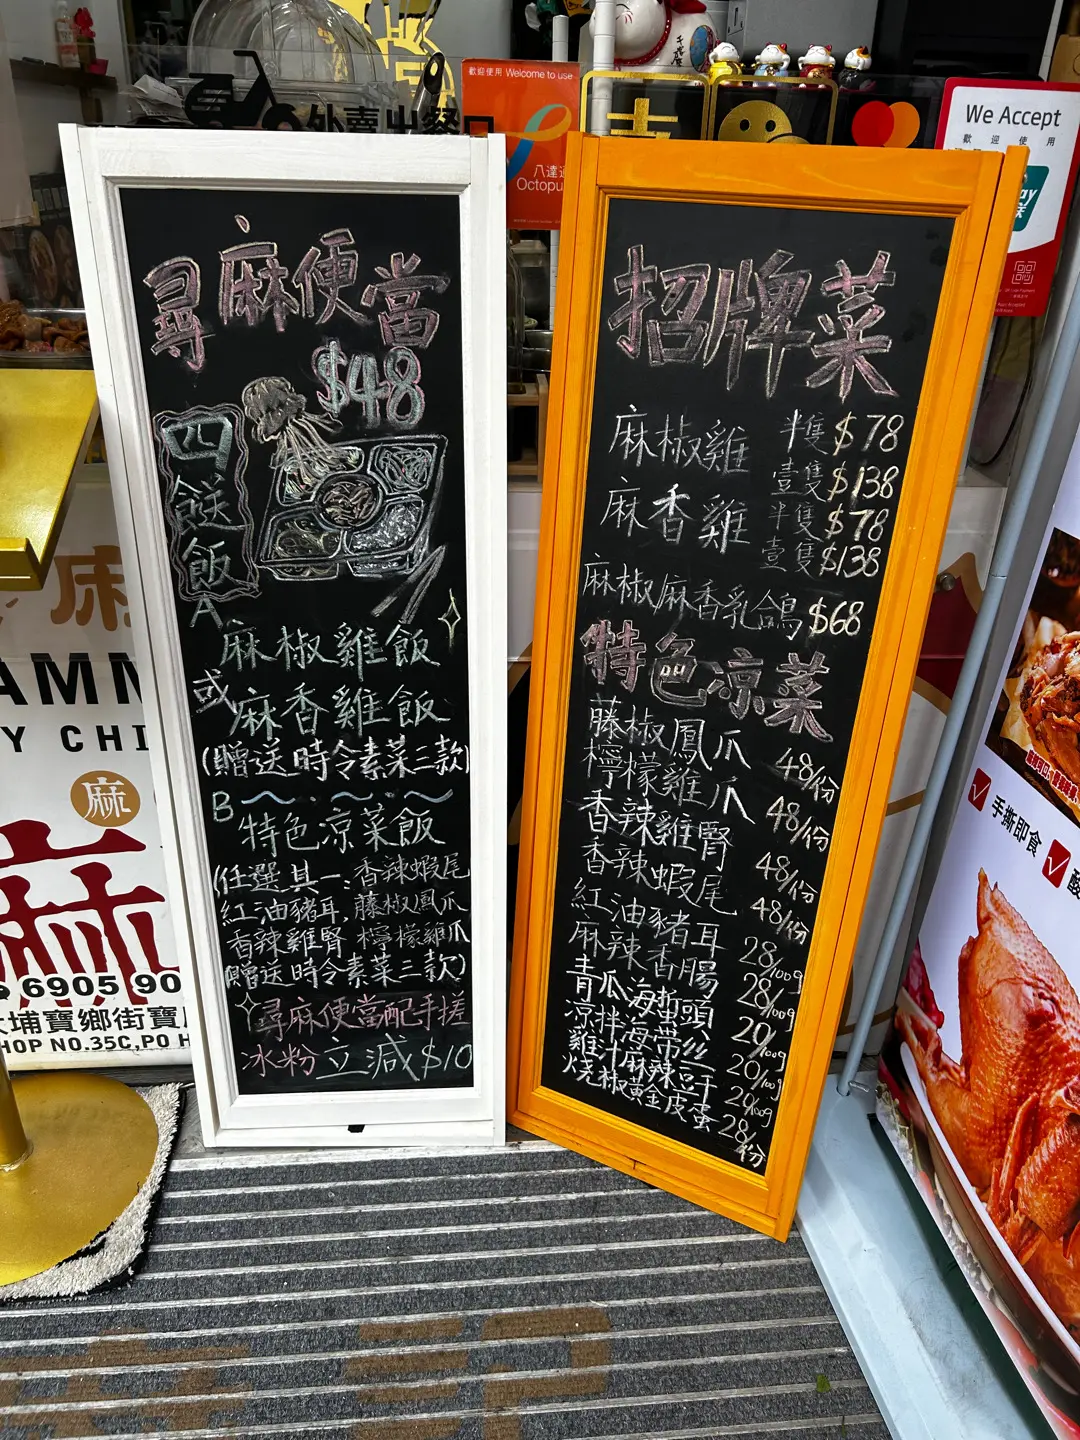 外賣出餐口
歡迎使用 Welcome to use
八達通
Octopu
We Accept
歡迎使用
尋麻便當
$48
四餸飯
A
麻椒雞飯
或
麻香雞飯
(贈送時令素菜三款)
B
特色凉菜飯
(任選其一:香辣蝦尾
紅油豬耳,藤椒鳳爪
香辣雞腎 檸檬雞爪
贈送時令素菜三款)
尋麻便當配手搓
冰粉立減$10
招牌菜
麻椒雞 半隻 $78
壹隻 $138
麻香雞 半隻 $78
壹隻 $138
麻椒麻香乳鴿 $68
特色凉菜
藤椒鳳爪 48/份
檸檬雞爪 48/份
香辣雞腎 48/份
香辣蝦尾 48/份
紅油豬耳 28/100g
麻辣香腸 28/100g
青瓜海蜇頭 20/100g
凉拌海帶絲 20/100g
雞汁麻辣豆干 20/100g
燒椒黃金皮蛋 28/份
麻
AMM
Y CHI
麻
麻
6905 90
大埔寶鄉街寶
HOP NO.35C,PO H
手撕即食